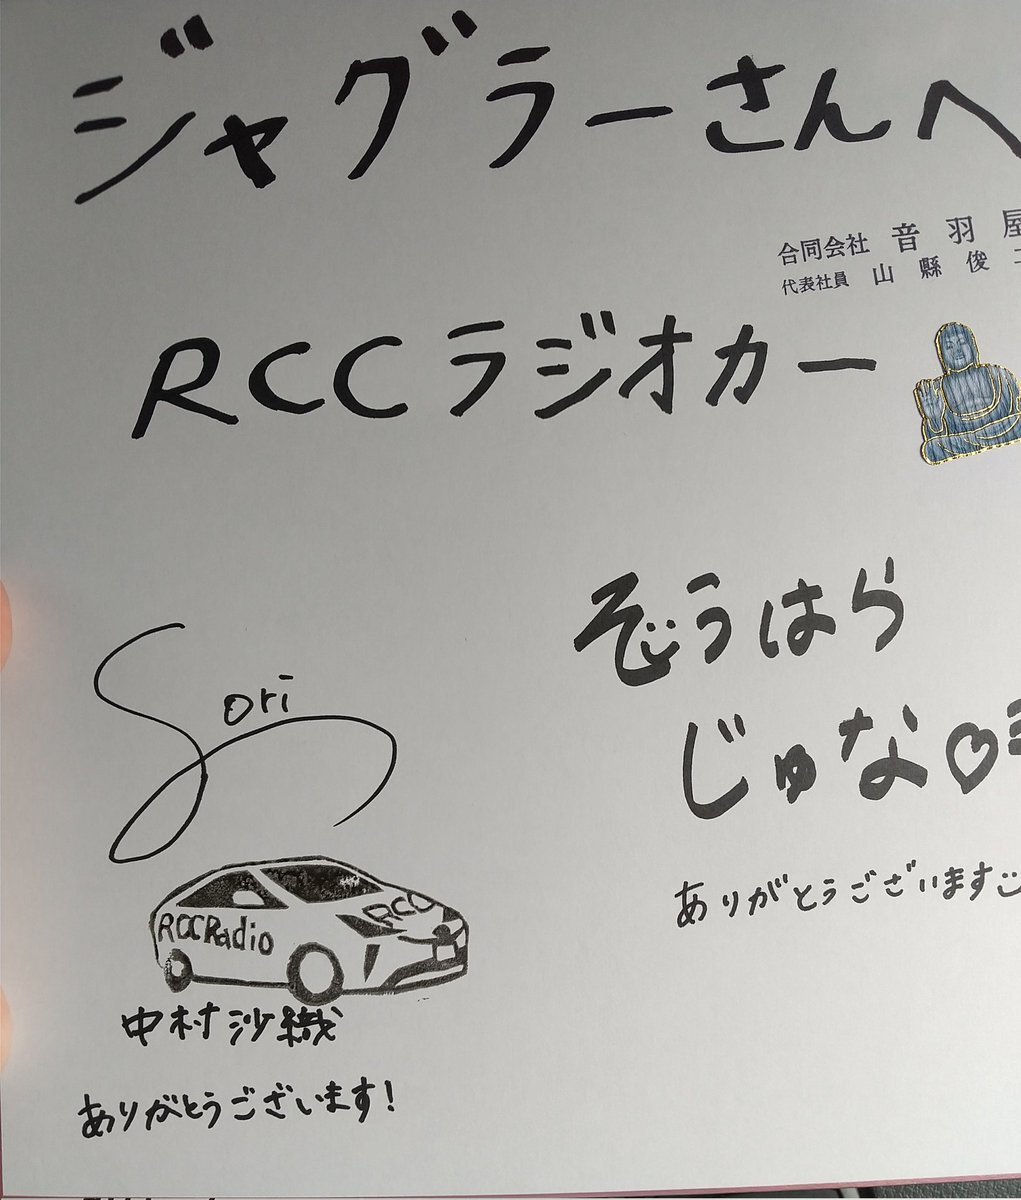 ジャグラーさんへ
合同会社 音羽屋
代表社員 山縣俊
RCCラジオカー
ぞうはら
じゅな♡
ありがとうございます
Sori
RCC
RCCRadio
中村沙織
ありがとうございます!